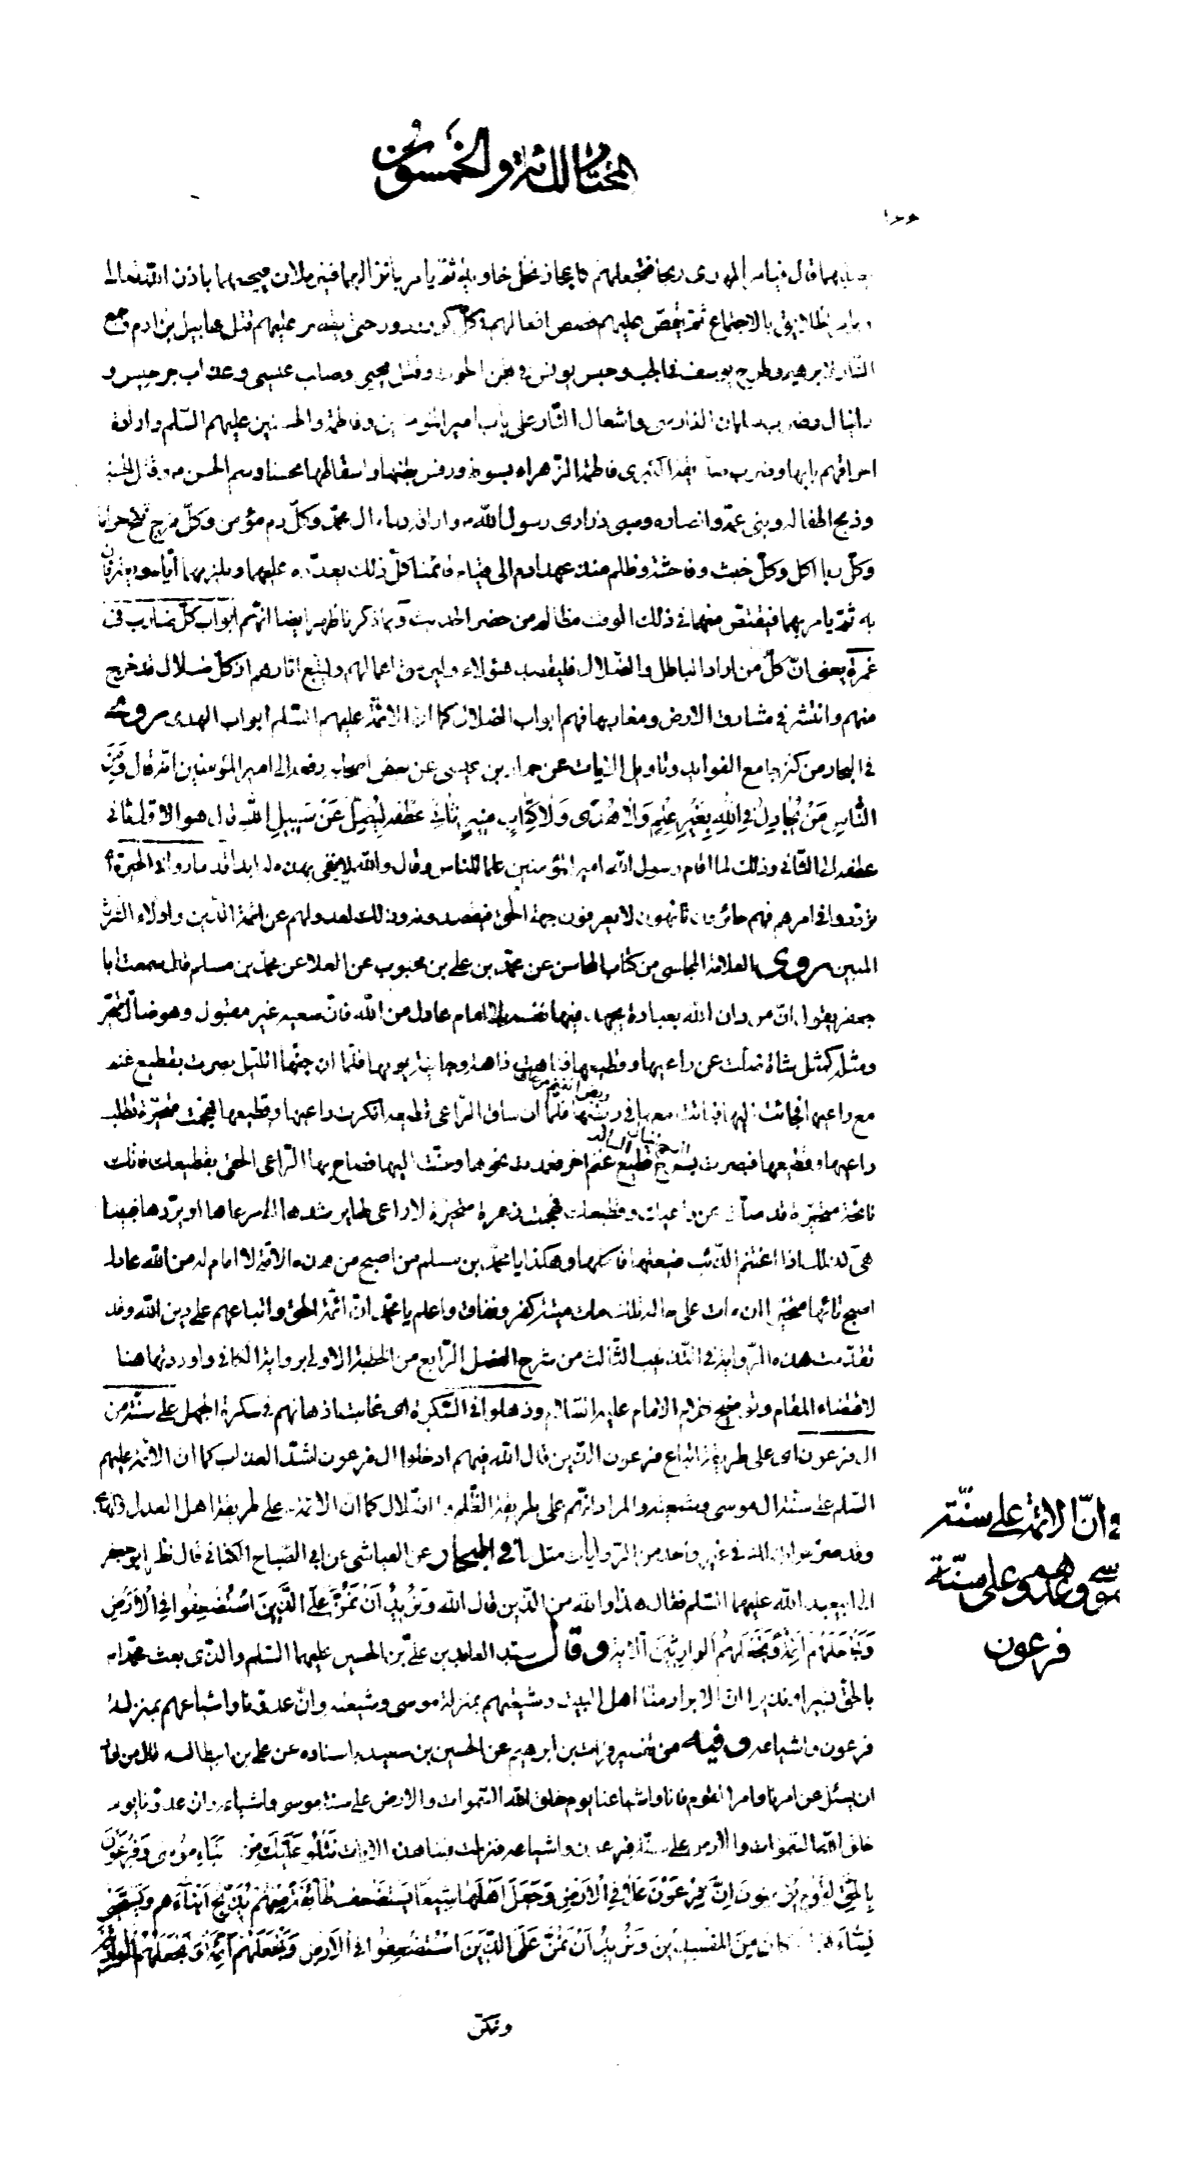 المختار الثالثة والخمسون
قال فيأمر المهدى ريحا فتجعلهم كاعجاز نخل خاوية ثمّ يأمر بانزالهما فينزلان فيحييهما باذن الله تعالى
ويأمر الخلايق بالاجتماع ثمّ يقصّ عليهم قصص افعالهم في كلّ كور ودور حتى يقصّ عليهم قتل هابيل بن ادم وجمع
النّار لابرهيم وطرح يوسف فى الجبّ وحبس يونس فى بطن الحوت وقتل يحيى وصلب عيسى وعذاب جرجيس و
دانيال وضرب سلمان الفارسى واشعال النّار على باب امير المؤمنين وفاطمة والحسنين عليهم السّلم وارادة
احراقهم بها وضرب الكبرى فاطمة الزّهراء بسوط ورفس بطنها واسقاطها محسنا وسم الحسن وقتل الحسين
وذبح اطفاله وبنى عمّه وانصاره وسبى ذرارى رسول الله واراقة دماء ال محمّد وكلّ دم مؤمن وكلّ فرج نكح حراما
وكلّ ربا اكل وكلّ خبث وفاحشة وظلم منذ عهد ادم الى قيام قائمنا كلّ ذلك يعدّده عليهما ويلزمهما ايّاه ويعترفان
به ثمّ يامر بهما فيقتصّ منهما فى ذلك الوقت مظالم من حضر الحديث وبما ذكرنا ظهر ايضا انّهم ابواب كلّ ضارب فى
غمرة يعنى انّ كلّ من اراد الباطل والضّلال فليقصد هؤلاء وليرمق اعمالهم وليتبع اثارهم اذ كلّ ضلال قد خرج
منهم وانتشر فى مشارق الارض ومغاربها فهم ابواب الضلال كما انّ الائمّة عليهم السّلم ابواب الهدى روى
فى البحار من كنز جامع الفوايد وتاويل الايات عن حماد بن عيسى عن بعض اصحابه رفعه الى امير المؤمنين انّه قال وَمِنَ
النَّاسِ مَنْ يُجَادِلُ فِى اللهِ بِغَيْرِ عِلْمٍ وَلَا هُدًى وَلَا كِتَابٍ مُنِيرٍ ثَانِيَ عِطْفِهِ لِيُضِلَّ عَنْ سَبِيلِ اللهِ قال هو الاوّل ثانى
عطفه الى الثّانى وذلك لما اقام رسول الله امير المؤمنين علما للناس وقال والله لا نفى بهذه له ابدا قد ماروا فى الحيرة اى
تردّدوا فى امرهم فهم حائرون تائهون لا يعرفون جهة الحقّ فيقصدونه وذلك لعدولهم عن ائمّة الدّين وادلاء الشرع
المبين روى العلامة المجلسى من كتاب المحاسن عن محمّد بن على بن محبوب عن العلا عن محمّد بن مسلم قال سمعت ابا
جعفر يقول انّ من دان الله بعبادة يجهد فيها نفسه بلا امام عادل من الله فانّ سعيه غير مقبول وهو ضالّ متحيّر
ومثله كمثل شاة ضلّت عن راعيها وقطيعها فتاهت ذاهبة وجائية يومها فلمّا ان جنّها اللّيل بصرت بقطيع غنم
مع راعيها فجائت اليها فباتت معها فى ربضتها فلمّا ان ساق الرّاعى قطيعه انكرت راعيها وقطيعها فهجمت متحيّرة تطلب
راعيها وقطيعها فبصرت بسرح قطيع غنم اخر فعمدت نحوها وحنّت اليها فصاح بها الرّاعى الحقى بقطيعك فانّك
تائهة متحيّرة قد ضللت عن راعيك وقطيعك فهجمت ذعرة متحيّرة لا راعى لها يرشدها الى مرعاها او يردّها فبينا
هى كذلك اذا اغتنم الذّئب ضيعتها فاكلها وهكذا يا محمّد بن مسلم من اصبح من هذه الامّة لا امام له من الله عادل
اصبح تائها متحيّرا ان مات على حاله ذلك مات ميتة كفر ونفاق واعلم يا محمّد انّ ائمّة الحقّ واتباعهم على دين الله وقد
تقدّمت هذه الرّواية فى التّذييل الثّالث من شرح الفصل الرّابع من الخطبة الاولى برواية الكافى واوردتها هنا
لاقتضاء المقام وتوضيح كلام الامام عليه السّلام وذهلوا فى السّكرة اى غابت اذهانهم فى سكرة الجهل على سنّة من
ال فرعون اى على طريقة اتباع فرعون الّذين قال الله فيهم ادخلوا ال فرعون اشدّ العذاب كما انّ الائمّة عليهم
السّلم على سنّة ال موسى وشيعته والمراد انّهم على طريقة الظّلم والضّلال كما انّ الائمّة على طريقة اهل العدل
وقد صرّح بذلك فى غير واحد من الرّوايات مثل ما فى البحار عن العياشى عن ابى الصّباح الكنانى قال نظر ابو جعفر
الى ابيعبد الله عليهما السّلم فقال هذا والله من الّذين قال الله وَنُرِيدُ اَنْ نَمُنَّ عَلَى الَّذِينَ اسْتُضْعِفُوا فِى الْاَرْضِ
وَنَجْعَلَهُمْ اَئِمَّةً وَنَجْعَلَهُمُ الوارِثِينَ الاية وقال سيّد العابدين على بن الحسين عليهما السّلم والّذى بعث محمّدا
بالحقّ بشيرا ونذيرا انّ الابرار منّا اهل البيت وشيعتهم بمنزلة موسى وشيعته وانّ عدوّنا واشياعهم بمنزلة
فرعون واشياعه وفيه من تفسير فرات بن ابرهيم عن الحسين بن سعيد باسناده عن على بن ابيطالب قال من اراد
ان يسئل عن امرنا وامر القوم فانّا واشياعنا يوم خلق الله السّموات والارض على سنّة موسى واشياعه وان عدوّنا يوم
خلق الله السّموات والارض على سنّة فرعون واشياعه فنزلت فينا هذه الايات نَتْلُو عَلَيْكَ مِنْ نَبَاءِ مُوسَى وَفِرْعَوْنَ
بِالْحَقِّ لِقَوْمٍ يُؤْمِنُونَ اِنَّ فِرْعَوْنَ عَلَا فِى الْاَرْضِ وَجَعَلَ اَهْلَهَا شِيَعًا يَسْتَضْعِفُ طَائِفَةً مِنْهُمْ يُذَبِّحُ اَبْنَاءَهُمْ وَيَسْتَحْيِى
نِسَاءَهُمْ كَانَ مِنَ الْمُفْسِدِينَ وَنُرِيدُ اَنْ نَمُنَّ عَلَى الَّذِينَ اسْتُضْعِفُوا فِى الْاَرْضِ وَنَجْعَلَهُمْ اَئِمَّةً وَنَجْعَلَهُمُ الْوَارِثِينَ
ونمكّن
فى انّ الائمة على سنّة
موسى وعدوهم على سنّة
فرعون